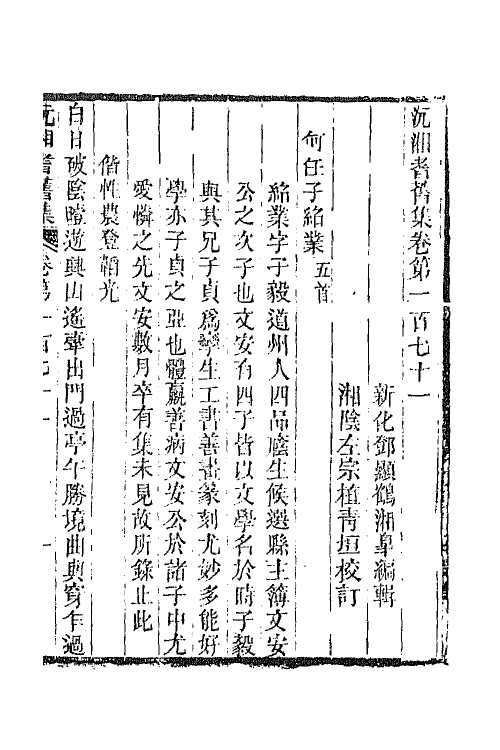 沅湘耆舊集卷第一百七十一
新化鄧顯鶴湘皋編輯
湘陰左宗植靑垣校訂
何任子紹業五首
紹業字子毅道州人四品廕生候選縣主簿文安
公之次子也文安有四子皆以文學名於時子毅
與其兄子貞爲孿生工書善畫篆刻尤妙多能好
學亦子貞之亞也體羸善病文安公於諸子中尤
愛憐之先文安數月卒有集未見故所錄止此
偕性農登韜光
白日破陰曀遊興山遙牽出門過亭午勝境曲與穿乍過
沅湘耆舊集 卷第一百七十一 一